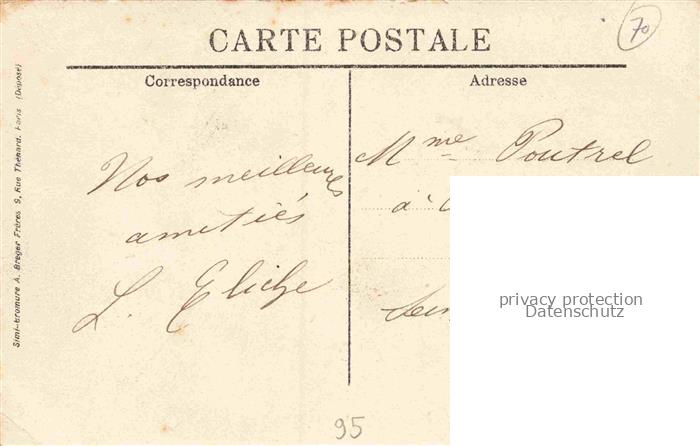 70
CARTE POSTALE
Correspondance
Adresse
Simi-bromure A. Breger Frères 9, Rue Thénard, Paris (Déposé)
Nos meilleures
ametiés
L. Eliche
Mme Poutrel
à
privacy protection
Datenschutz
95